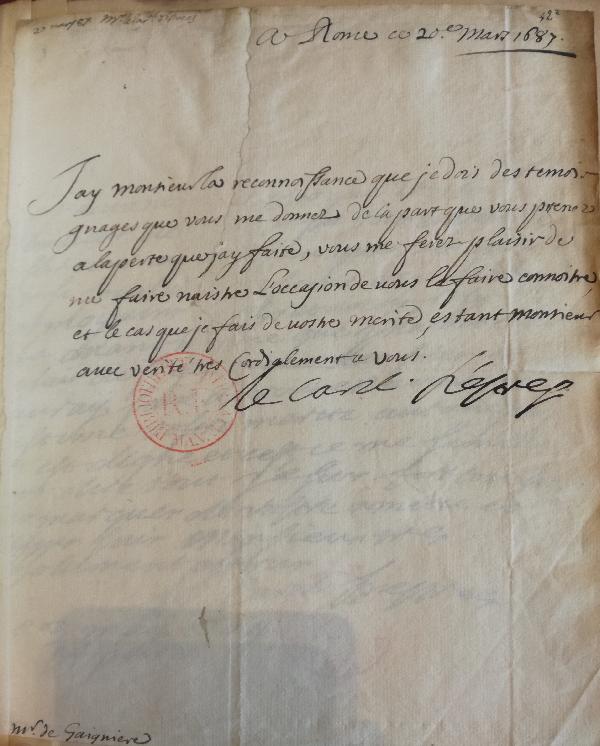 42
20 mars 87
A Rome ce 20.e Mars 1687.
J'ay monsieur la reconnoissance que je dois des temoi-
gnages que vous me donnez de la part que vous prenez
a la perte que jay faite, vous me ferez plaisir de
me faire naistre l'occasion de vous la faire connoitre,
et le cas que je fais de vostre merite, estant monsieur
avec verité tres Cordialement a vous.
le Card.
Mr. de Gaigniere